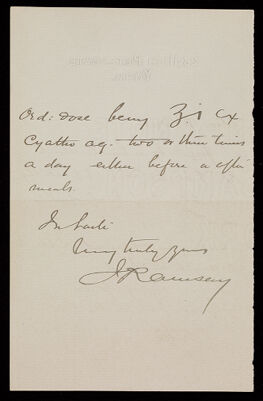 Ord: dose being ʒi ex
Cyatho aq. two or three times
a day either before or after
meals.
In haste
Very truly yours
J Ramsay